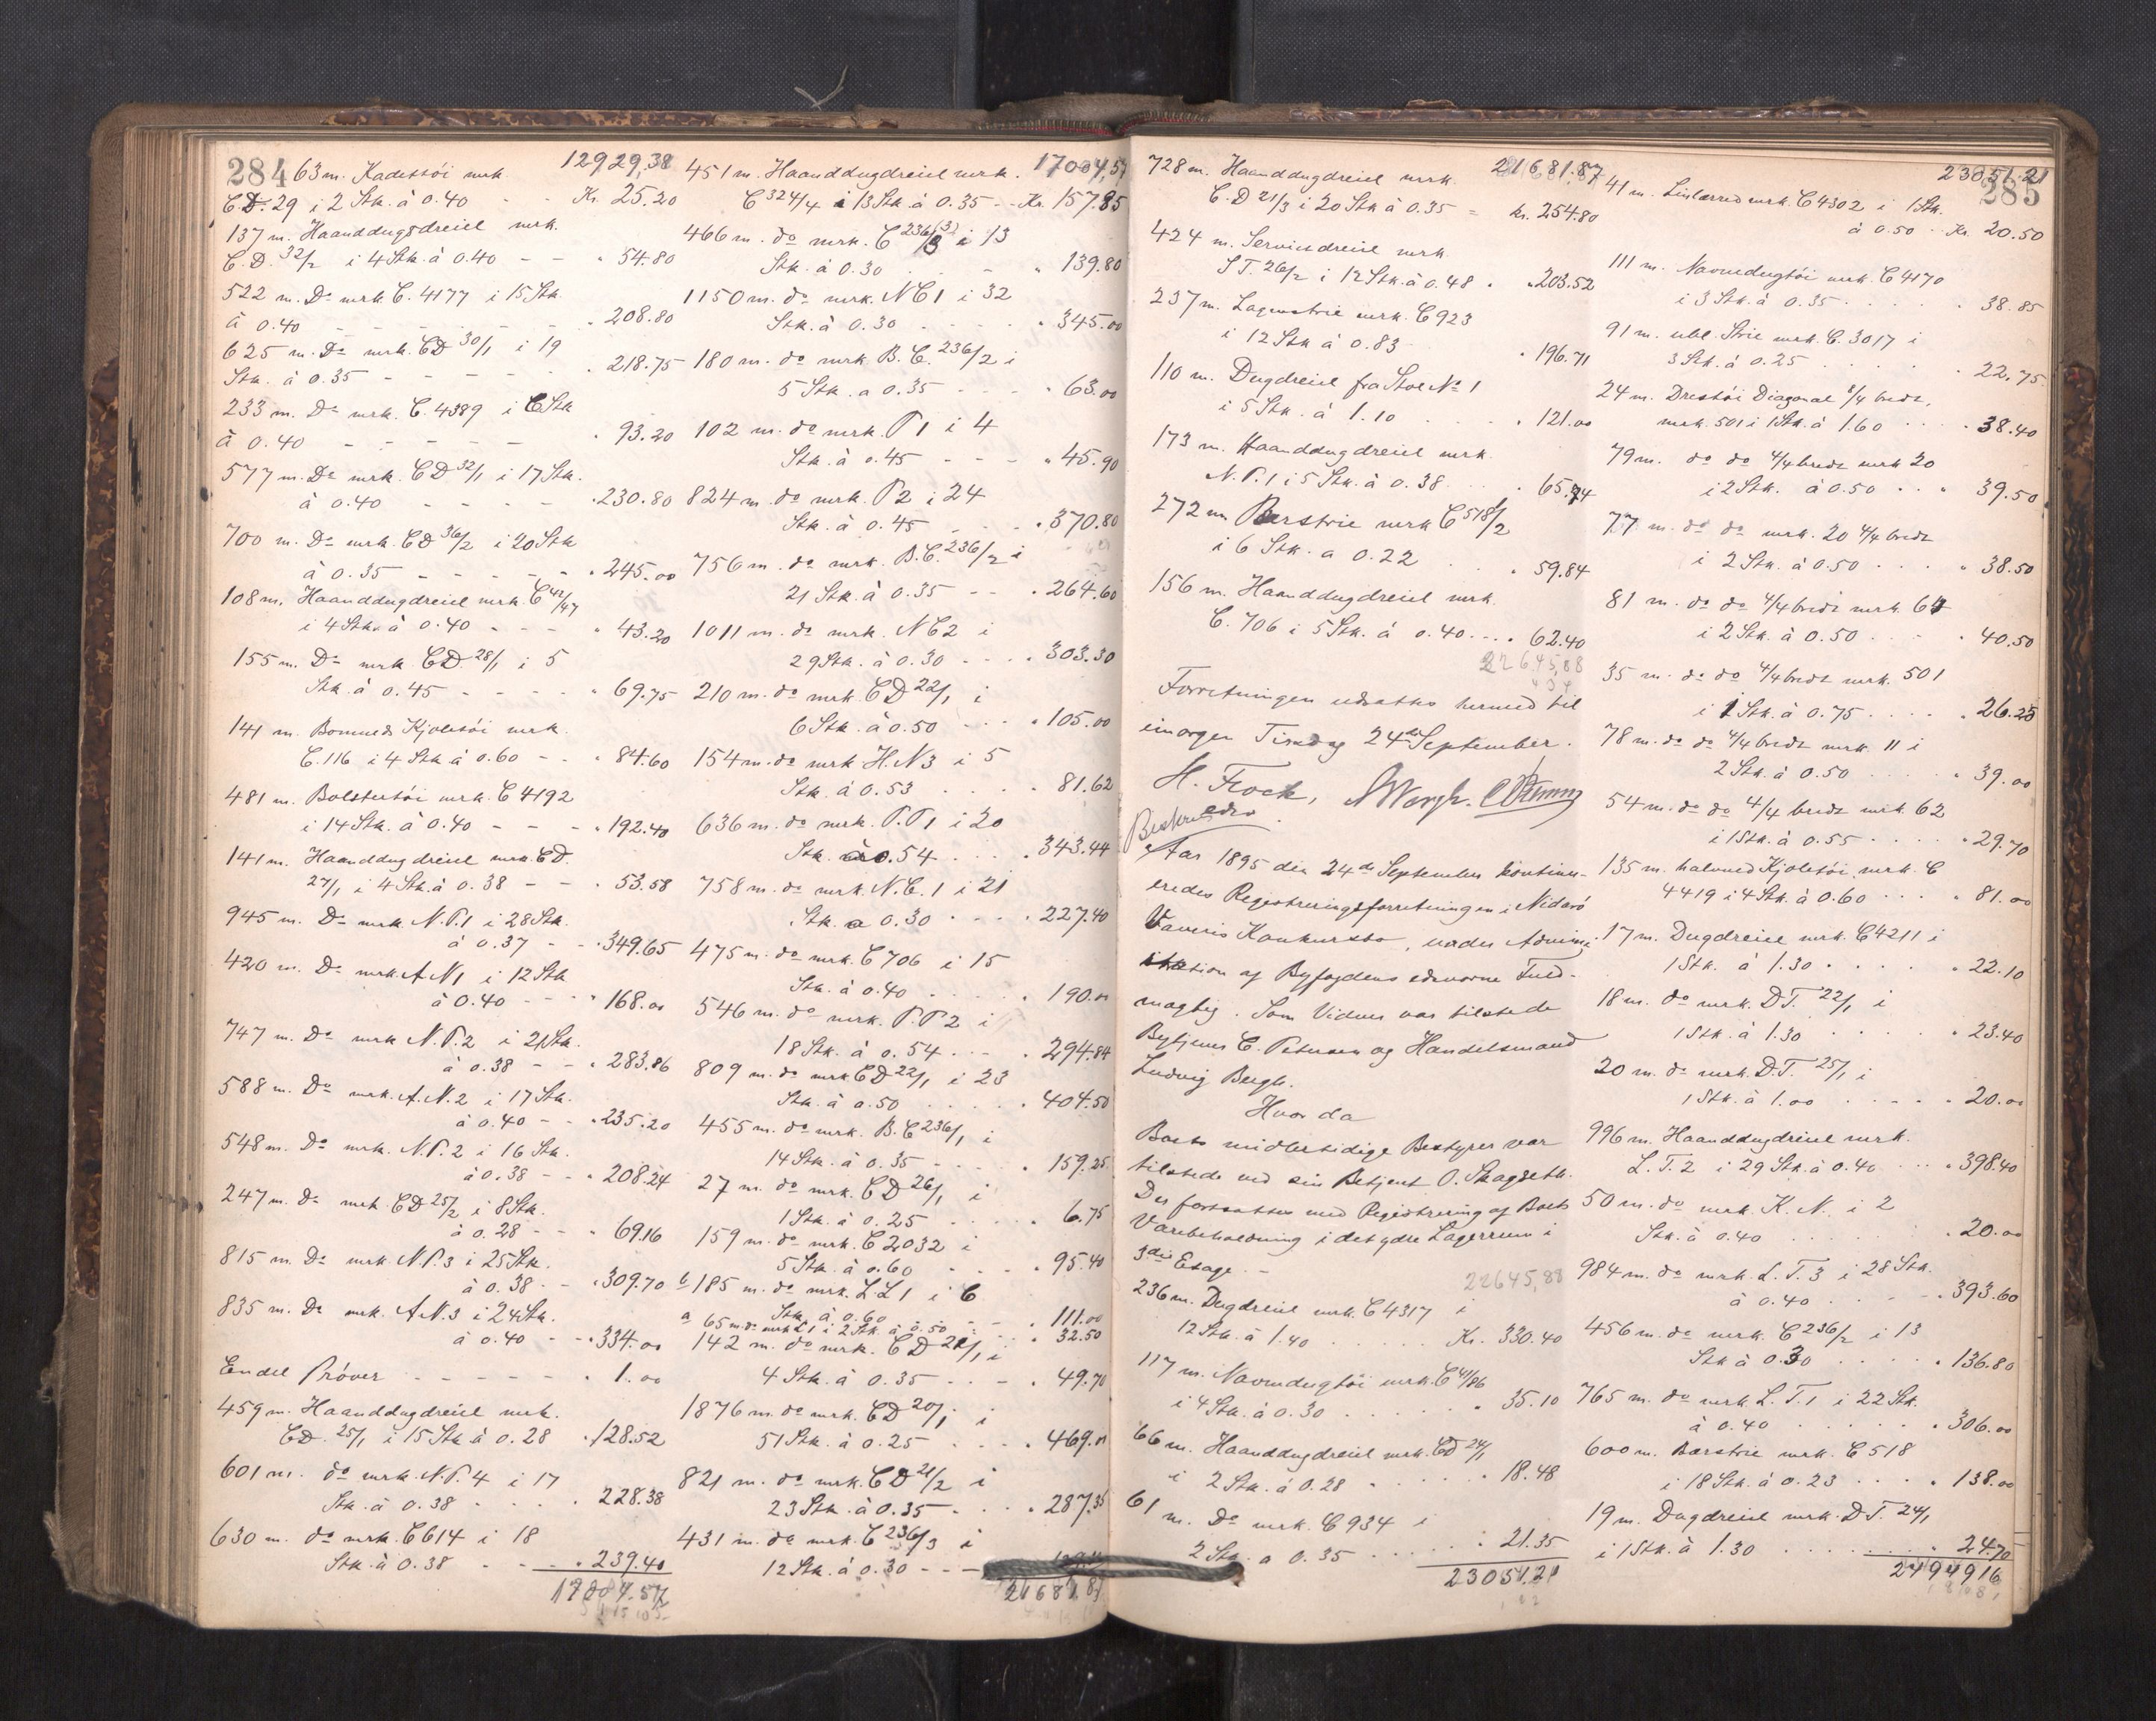 284
12929,38
63 m. Kadettöi mrk.
C.D. 29 i 2 Stk. à 0.40 - - Kr. 25.20
137 m. Haanddugsdreiel mrk.
C.D. 32/2 i 4 Stk. à 0.40 - - " 54.80
522 m. Do mrk. C. 4177 i 15 Stk.
à 0.40 - - - - - " 208.80
625 m. Do mrk. CD 30/1 i 19
Stk. à 0.35 - - - - - " 218.75
233 m. Do mrk. C. 4389 i 6 Stk
à 0.40 - - - - - " 93.20
577 m. Do mrk. CD 32/1 i 17 Stk.
à 0.40 - - - - " 230.80
700 m. Do mrk. CD 36/2 i 20 Stk
à 0.35 - - - - - " 245.00
108 m. Haanddugdreiel mrk. C 41/47
i 4 Stk. à 0.40 - - - " 43.20
155 m. Do mrk. CD. 28/1 i 5
Stk. à 0.45 - - - - " 69.75
141 m. Bomulds Kjoletöi mrk.
C. 116 i 4 Stk à 0.60 - - " 84.60
481 m. Bolstertöi mrk. C 4192
i 14 Stk. à 0.40 - - - " 192.40
141 m. Haanddugdreiel mrk. CD.
27/1 i 4 Stk. à 0.38 - - " 53.58
945 m. Do mrk. N.P.1 i 28 Stk.
à 0.37 - - " 349.65
420 m. Do mrk. A.N1 i 12 Stk
à 0.40 - - - " 168.00
747 m. Do mrk. N.P.2 i 21 Stk.
à 0.38 - - " 283.86
588 m. Do mrk. A.N.2 i 17 Stk.
à 0.40 - - " 235.20
548 m. Do mrk. N.P.2 i 16 Stk.
à 0.38 - - " 208.24
247 m. Do mrk. CD 25/2 i 8 Stk.
à 0.28 - - " 69.16
815 m. Do mrk. N.P.3 i 25 Stk.
à 0.38 - - " 309.70
835 m. Do mrk. A.N.3 i 24 Stk.
à 0.40 - - " 334.00
Endel Prøver - - - - - " 1.00
459 m. Haanddugdreiel mrk.
CD. 25/1 i 15 Stk à 0.28 " 128.52
601 m. do mrk. N.P.4 i 17
Stk. à 0.38 - - - - " 228.38
630 m. do mrk. C 614 i 18
Stk. à 0.38 - - - " 239.40
17004.57
17004,57
451 m. Haanddugdreiel mrk.
C 324/4 i 13 Stk. à 0.35 - - Kr. 157.85
466 m. do mrk. C 236/3 i 13
Stk. à 0.30 - - " 139.80
1150 m. do mrk. NC1 i 32
Stk. à 0.30 - - - - " 345.00
180 m. do mrk. B.C. 236/2 i
5 Stk. a 0.35 - - - " 63.00
102 m. do mrk. P1 i 4
Stk. à 0.45 - - - " 45.90
824 m. do mrk. P2 i 24
Stk. à 0.45 - - - " 370.80
756 m. do mrk. B.C. 236/2 i
21 Stk. à 0.35 - - " 264.60
1011 m. do mrk. NC2 i
29 Stk. à 0.30 - - - " 303.30
210 m. do mrk. CD 22/1 i
6 Stk. à 0.50 - - - " 105.00
154 m. do mrk. H.N3 i 5
Stk. à 0.53 . . . . " 81.62
636 m. do mrk. P.P1 i 20
Stk. à 0.54 . . . . " 343.44
758 m. do mrk. N.C.1 i 21
Stk. a 0.30 . . . . " 227.40
475 m. do mrk. C 706 i 15
Stk. à 0.40 . . . . " 190.00
546 m. do mrk. P.P2 i
18 Stk. à 0.54 . . . " 294.84
809 m. do mrk. CD 22/1 i 23
Stk. à 0.50 . . . . " 404.50
455 m. do mrk. B.C 236/1 i
14 Stk. à 0.35 - - . . " 159.25
27 m. do mrk. CD 26/1 i
1 Stk. à 0.25 . . . . " 6.75
159 m. do mrk. C 2032 i
5 Stk. à 0.60 . . . . " 95.40
b 185 m. do mrk. L.L1 i 6
Stk. à 0.60 - - " 111.00
a 65 m. do mrk. L1 i 2 Stk. à 0.50 - - " 32.50
142 m. do mrk. CD 21/1 i
4 Stk. à 0.35 - - - . " 49.70
1876 m. do mrk. CD 20/1 i
51 Stk. à 0.25 . . . . " 469.00
821 m. do mrk. CD 21/2 i
23 Stk. à 0.35 - . . . " 287.35
431 m. do mrk. C 236/3 i
12 Stk. à 0.30 - - -
21681.87
21681.87
728 m. Haanddugdreiel mrk.
C.D 21/3 i 20 Stk à 0.35 = kr. 254.80
424 m. Servietdreiel mrk
S.T. 26/2 i 12 Stk. à 0.48 . " 203.52
237 m. Lagenstrie mrk. C 923
i 12 Stk à 0.83 " 196.71
110 m. Dugdreiel fra Stol No 1
i 5 Stk. à 1.10 . . . . " 121.00
173 m. Haanddugdreiel mrk.
N.P.1 i 5 Stk. à 0.38 . . . " 65.74
272 m Bærstrie mrk C 518/2
i 6 Stk. a 0.22 . . . " 59.84
156 m. Haanddugdreiel mrk.
C. 706 i 5 Stk. á 0.40 . . . . " 62.40
22645,88
Forretningen udsattes hermed til
imorgen Tirsdag 24de September.
H. Flock,
Beskrevedes
Aar 1895 den 24de September kontinu-
eredes Registreringsforretningen i Nidarø
Væveris Konkursbo, under Admini-
stration af Byfogdens edsvorne Fuld-
mægtig. Som Vidner var tilstede
Bytjener C. Petersen og Handelsmand
Ludvig Bergh.
Hvor da
Boets midlertidige Bestyrer var
tilstede ved sin Betjent O. Skagseth.
Der fortsattes med Registrering af Boets
Varebeholdning i det ydre Lagerrum i
3die Etage. -
22645,88
236 m. Dugdreiel mrk. C 4317 i
12 Stk. à 1.40 . . . . . Kr. 330.40
117 m. Navnedugtöi mrk. C 41/86
i 4 Stk. à 0.30 . . . . . . " 35.10
66 m. Haanddugdreiel mrk. CD 24/1
i 2 Stk. á 0.28 . . . . . " 18.48
61 m. Do mrk. C 934 i
2 Stk. a 0.35 . . . . . . " 21.35
23051.21
23051.21
285
41 m. Linlærred mrk. C 4302 i 1 Stk.
à 0.50 . . Kr. 20.50
111 m. Navnedugtöi mrk. C 4170
i 3 Stk. à 0.35 . . . . . " 38.85
91 m. ubl. Strie mrk. C. 3017 i
3 Stk. à 0.25 . . . . . " 22.75
24 m. Drestöi Diagonal 8/4 bredt,
mrk. 501 i 1 Stk. à 1.60 . . . " 38.40
79 m. do do 4/4 bredt mrk 20
i 2 Stk. à 0.50 . . . 39.50
77 m. do do mrk. 20 4/4 bredt
i 2 Stk. à 0.50 . . . . " 38.50
81 m. do do 4/4 bredt mrk. 64
i 2 Stk. à 0.50 . . . . " 40.50
35 m. do do 4/4 bredt mrk. 501
i 1 Stk. à 0.75 . . . . " 26.25
78 m. do do 4/4 bredt mrk. 11 i
2 Stk. à 0.50 . . . . . " 39.00
54 m. do do 4/4 bredt mrk 62
i 1 Stk. à 0.55 . . . . . " 29.70
135 m. halvuld Kjoletöi, mrk. C
4419 i 4 Stk. à 0.60 . . . . " 81.00
17 m. Dugdreiel mrk. C 4211 i
1 Stk. à 1.30 . . . . . " 22.10
18 m. do mrk. D.T. 22/1 i
1 Stk. à 1.30 . . . . . " 23.40
20 m. do mrk. D.T. 25/1 i
1 Stk. à 1.00 . . . . . " 20.00
996 m. Haanddugdreiel mrk.
L.T.2 i 29 Stk. à 0.40 . . . " 398.40
50 m. do mrk. K.N. i 2
Stk. à 0.40 . . . . . " 20.00
984 m. do mrk. L.T.3 i 28 Stk.
à 0.40 . . . . . " 393.60
456 m. do mrk. C 236/2 i 13
Stk à 0.30 . . . . . " 136.80
765 m. do mrk. L.T.1 i 22 Stk.
à 0.40 . . . . . . " 306.00
600 m. Bærstrie mrk. C 518
i 18 Stk. à 0.23 . . . . " 138.00
19 m. Dugdreiel mrk. D.T. 24/1
i 1 Stk. à 1.30 . . . . . . . " 24.70
24949,16